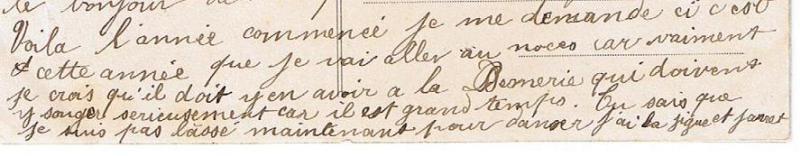 le bonjour de
Voila l'année commencé je me demande ci c'est
cette année que je vai aller au noces car vraiment
je crois qu'il doit y en avoir a la Bernerie qui doivent
y songer serieusement car il est grand temps. Tu sais que
je suis pas lassé maintenant pour danser j'ai la gigue et jarret